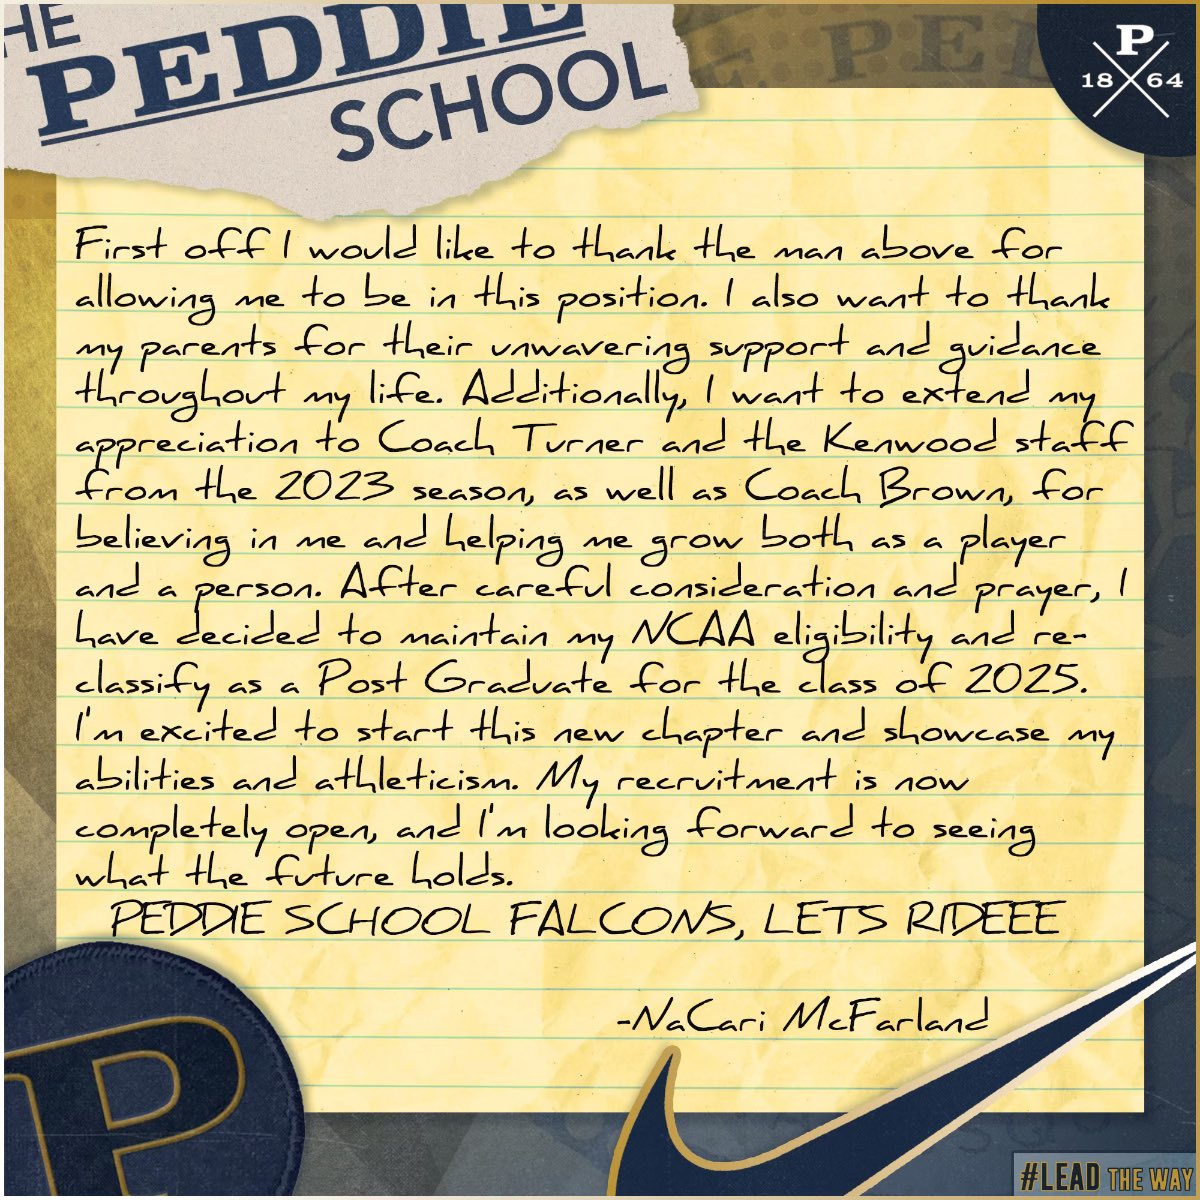 THE
PEDDIE
SCHOOL
P
18 64
First off I would like to thank the man above for
allowing me to be in this position. I also want to thank
my parents for their unwavering support and guidance
throughout my life. Additionally, I want to extend my
appreciation to Coach Turner and the Kenwood staff
from the 2023 season, as well as Coach Brown, for
believing in me and helping me grow both as a player
and a person. After careful consideration and prayer, I
have decided to maintain my NCAA eligibility and re-
classify as a Post Graduate for the class of 2025.
I'm excited to start this new chapter and showcase my
abilities and athleticism. My recruitment is now
completely open, and I'm looking forward to seeing
what the future holds.
PEDDIE SCHOOL FALCONS, LETS RIDEEE
-NaCari McFarland
P
#LEAD THE WAY